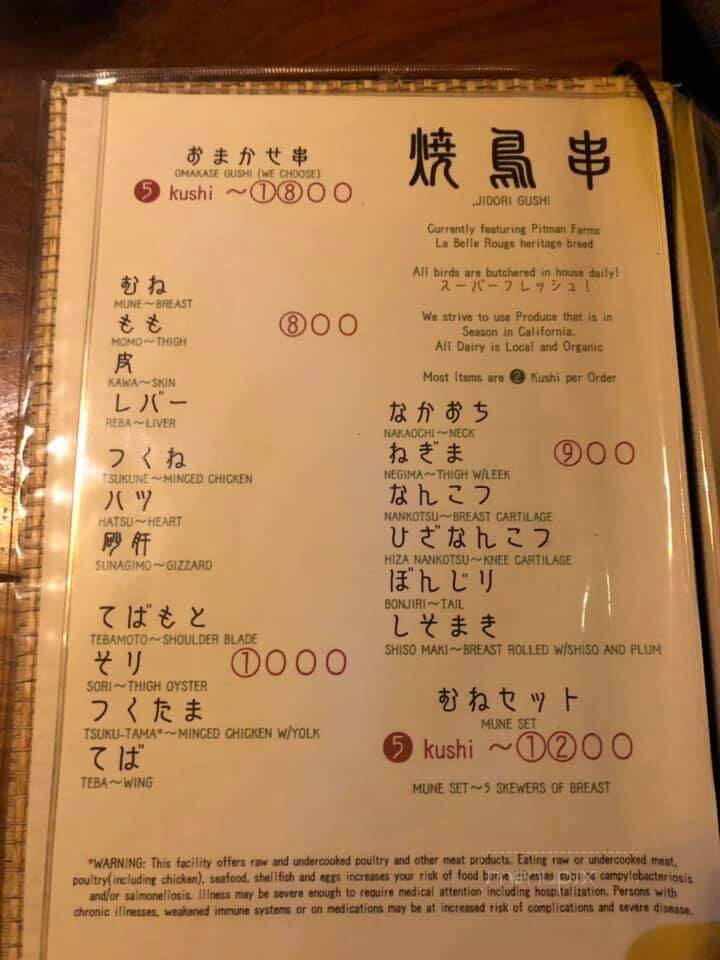 おまかせ串
OMAKASE GUSHI (WE CHOOSE)
5 kushi ～①⑧00
むね
MUNE～BREAST
もも
MOMO～THIGH
⑧00
皮
KAWA～SKIN
レバー
REBA～LIVER
つくね
TSUKUNE～MINCED CHICKEN
ハツ
HATSU～HEART
砂肝
SUNAGIMO～GIZZARD
てばもと
TEBAMOTO～SHOULDER BLADE
そり
SORI～THIGH OYSTER
①000
つくたま
TSUKU-TAMA*～MINCED CHICKEN W/YOLK
てば
TEBA～WING
焼鳥串
JIDORI GUSHI
Currently featuring Pitman Farms
La Belle Rouge heritage breed
All birds are butchered in house daily!
スーパーフレッシュ！
We strive to use Produce that is in
Season in California.
All Dairy is Local and Organic
Most Items are 2 Kushi per Order
なかおち
NAKAOCHI～NECK
ねぎま
NEGIMA～THIGH W/LEEK
⑨00
なんこつ
NANKOTSU～BREAST CARTILAGE
ひざなんこつ
HIZA NANKOTSU～KNEE CARTILAGE
ぼんじり
BONJIRI～TAIL
しそまき
SHISO MAKI～BREAST ROLLED W/SHISO AND PLUM
むねセット
MUNE SET
5 kushi ～①②00
MUNE SET～5 SKEWERS OF BREAST
*WARNING: This facility offers raw and undercooked poultry and other meat products. Eating raw or undercooked meat,
poultry(including chicken), seafood, shellfish and eggs increases your risk of food campylobacteriosis
and/or salmonellosis. Illness may be severe enough to require medical attention including hospitalization. Persons with
chronic illnesses, weakened immune systems or on medications may be at increased risk of complications and severe disease.
menupix